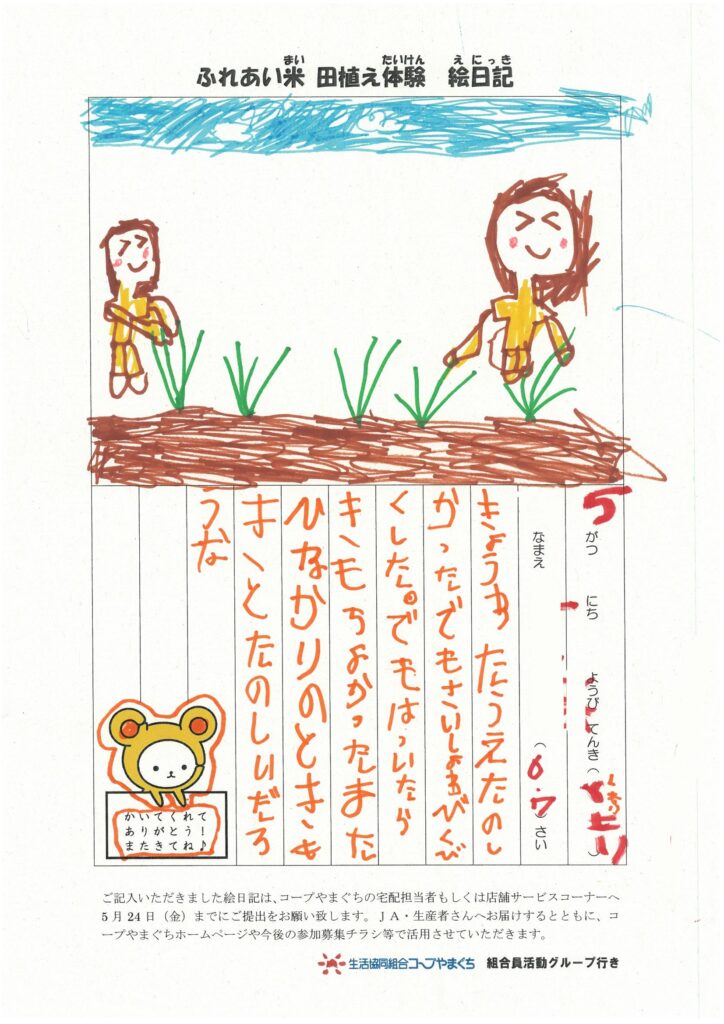 ふれあい米 田植え体験 絵日記
まい
たいけん
えにっき
5がつ にち ようび てんき(くもり)
なまえ (6.7)さい
きょうわたうえたのし
かったでもさいしょわびくび
くした。でもはいたら
きもちよかったまた
ひなかりのときも
きっとたのしいだろ
うな
かいてくれて
ありがとう!
またきてね♪
ご記入いただきました絵日記は、コープやまぐちの宅配担当者もしくは店舗サービスコーナーへ
5月24日(金)までにご提出をお願い致します。JA・生産者さんへお届けするとともに、コ
ープやまぐちホームページや今後の参加募集チラシ等で活用させていただきます。
生活協同組合コープやまぐち 組合員活動グループ行き